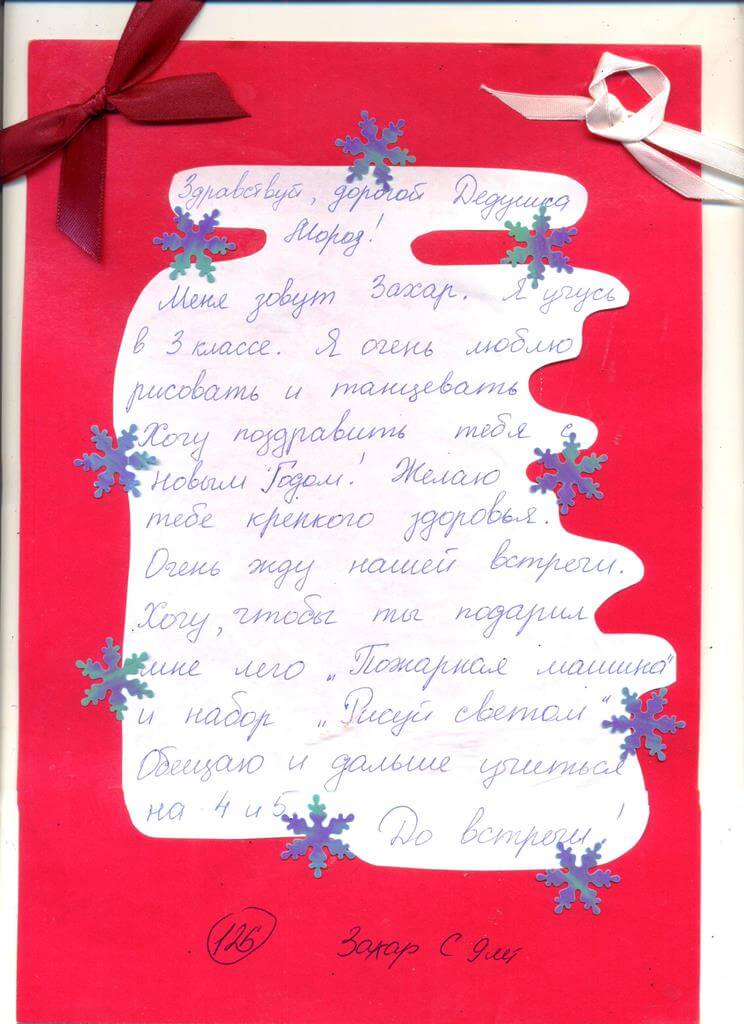 Здравствуй, дорогой Дедушка
Мороз!
Меня зовут Захар. Я учусь
в 3 классе. Я очень люблю
рисовать и танцевать
Хочу поздравить тебя с
новым Годом! Желаю
тебе крепкого здоровья.
Очень жду нашей встречи.
Хочу, чтобы ты подарил
мне лего „Пожарная машина"
и набор „Рисуй светом"
Обещаю и дальше учиться
на 4 и 5.
До встречи!
126
Захар С 9 лет